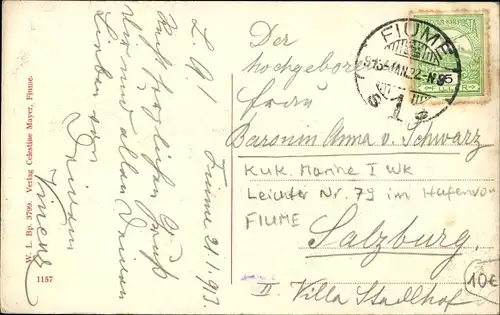 L. A!
Fiume 21/1.913.
Recht herzlichen Gruß
Dir und allen Deinen
Lieben von
Deinem
W. L. Bp. 3799. Verlag Celestine Mayer, Fiume.
1157
Der
hochgeborenen
Frau
Baronin Anna v. Schwarz
KuK. Marine I WK
Leichter Nr. 79 im Hafen von
FIUME
Salzburg.
II. Villa Stadlhof
10€
FIUME
913 JAN. 22
1
5